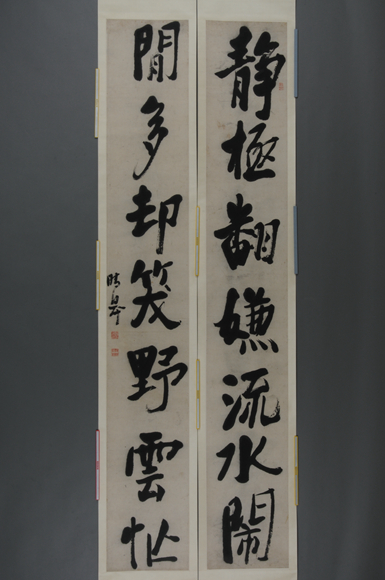 静極翻嫌流水鬧
閒多却笑野雲忙
晴皋